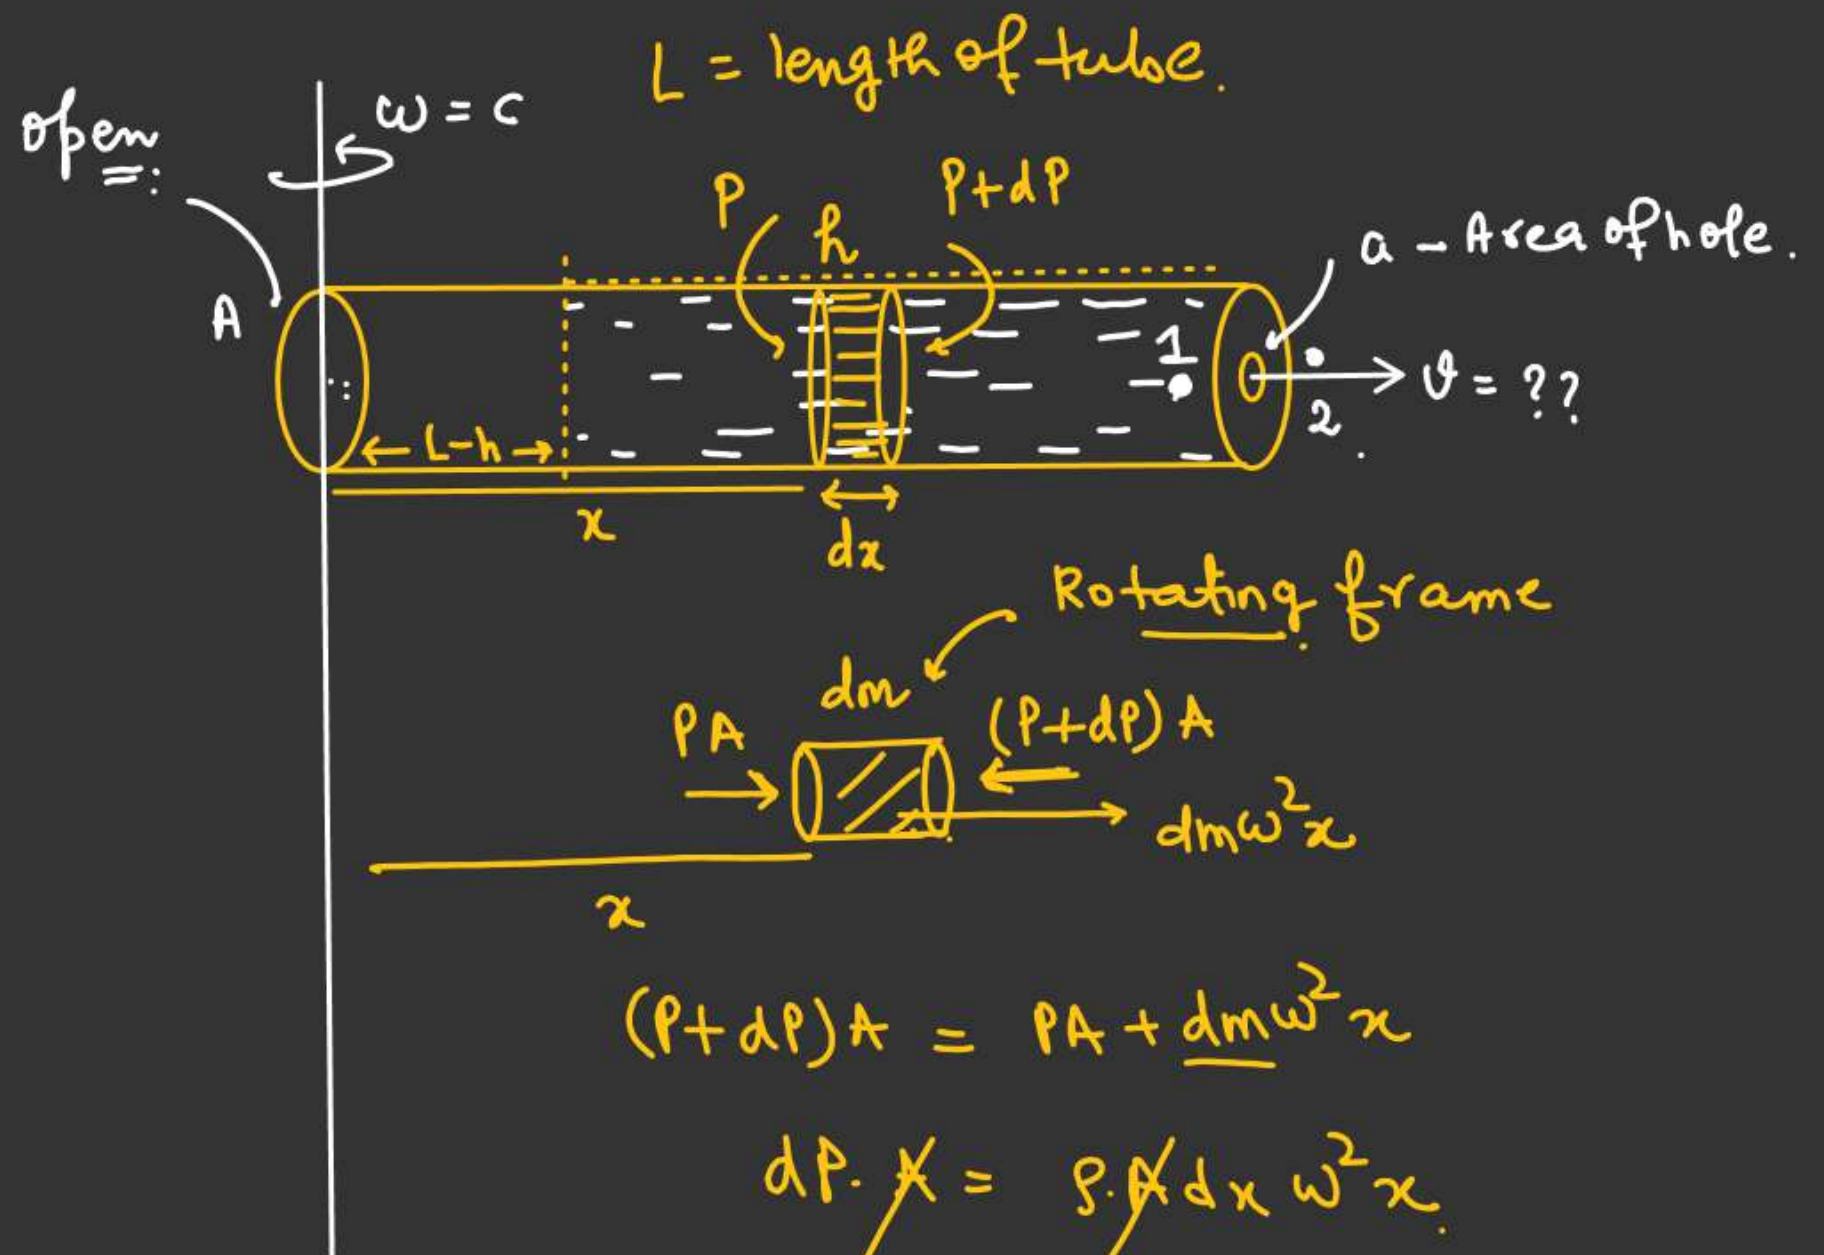 L = length of tube.
open
ω = c
P
h
P+dP
a - Area of hole.
A
1
2
v = ??
← L-h →
x
dx
Rotating frame
dm
PA
(P+dP) A
dmω²x
x
(P+dP)A = PA + dmω²x
dP. A = ρ.A dx ω²x.